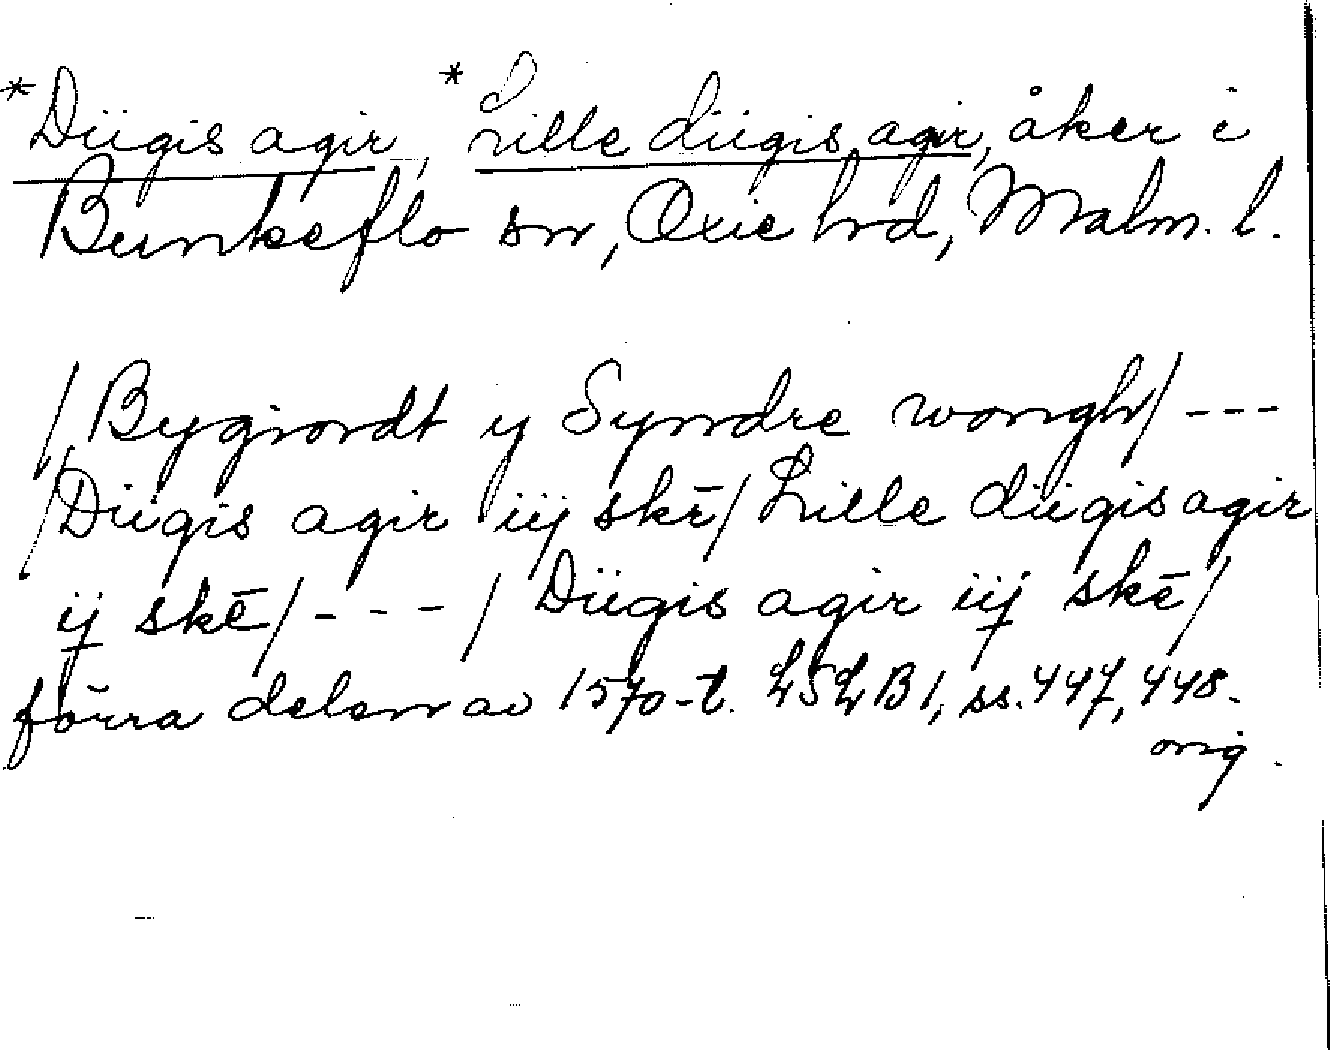 *Diigis agir, *Lille diigis agir, åker i
Bunkeflo sn, Oxie hrd, Malm. l.
/Bygiordt y Syndre wongh/ ---
/Diigis agir iij skē/ Lille diigis agir
ij skē/ --- / Diigis agir iij skē/
förra delen av 1570-t. LSLB 1, ss. 447, 448.
orig.